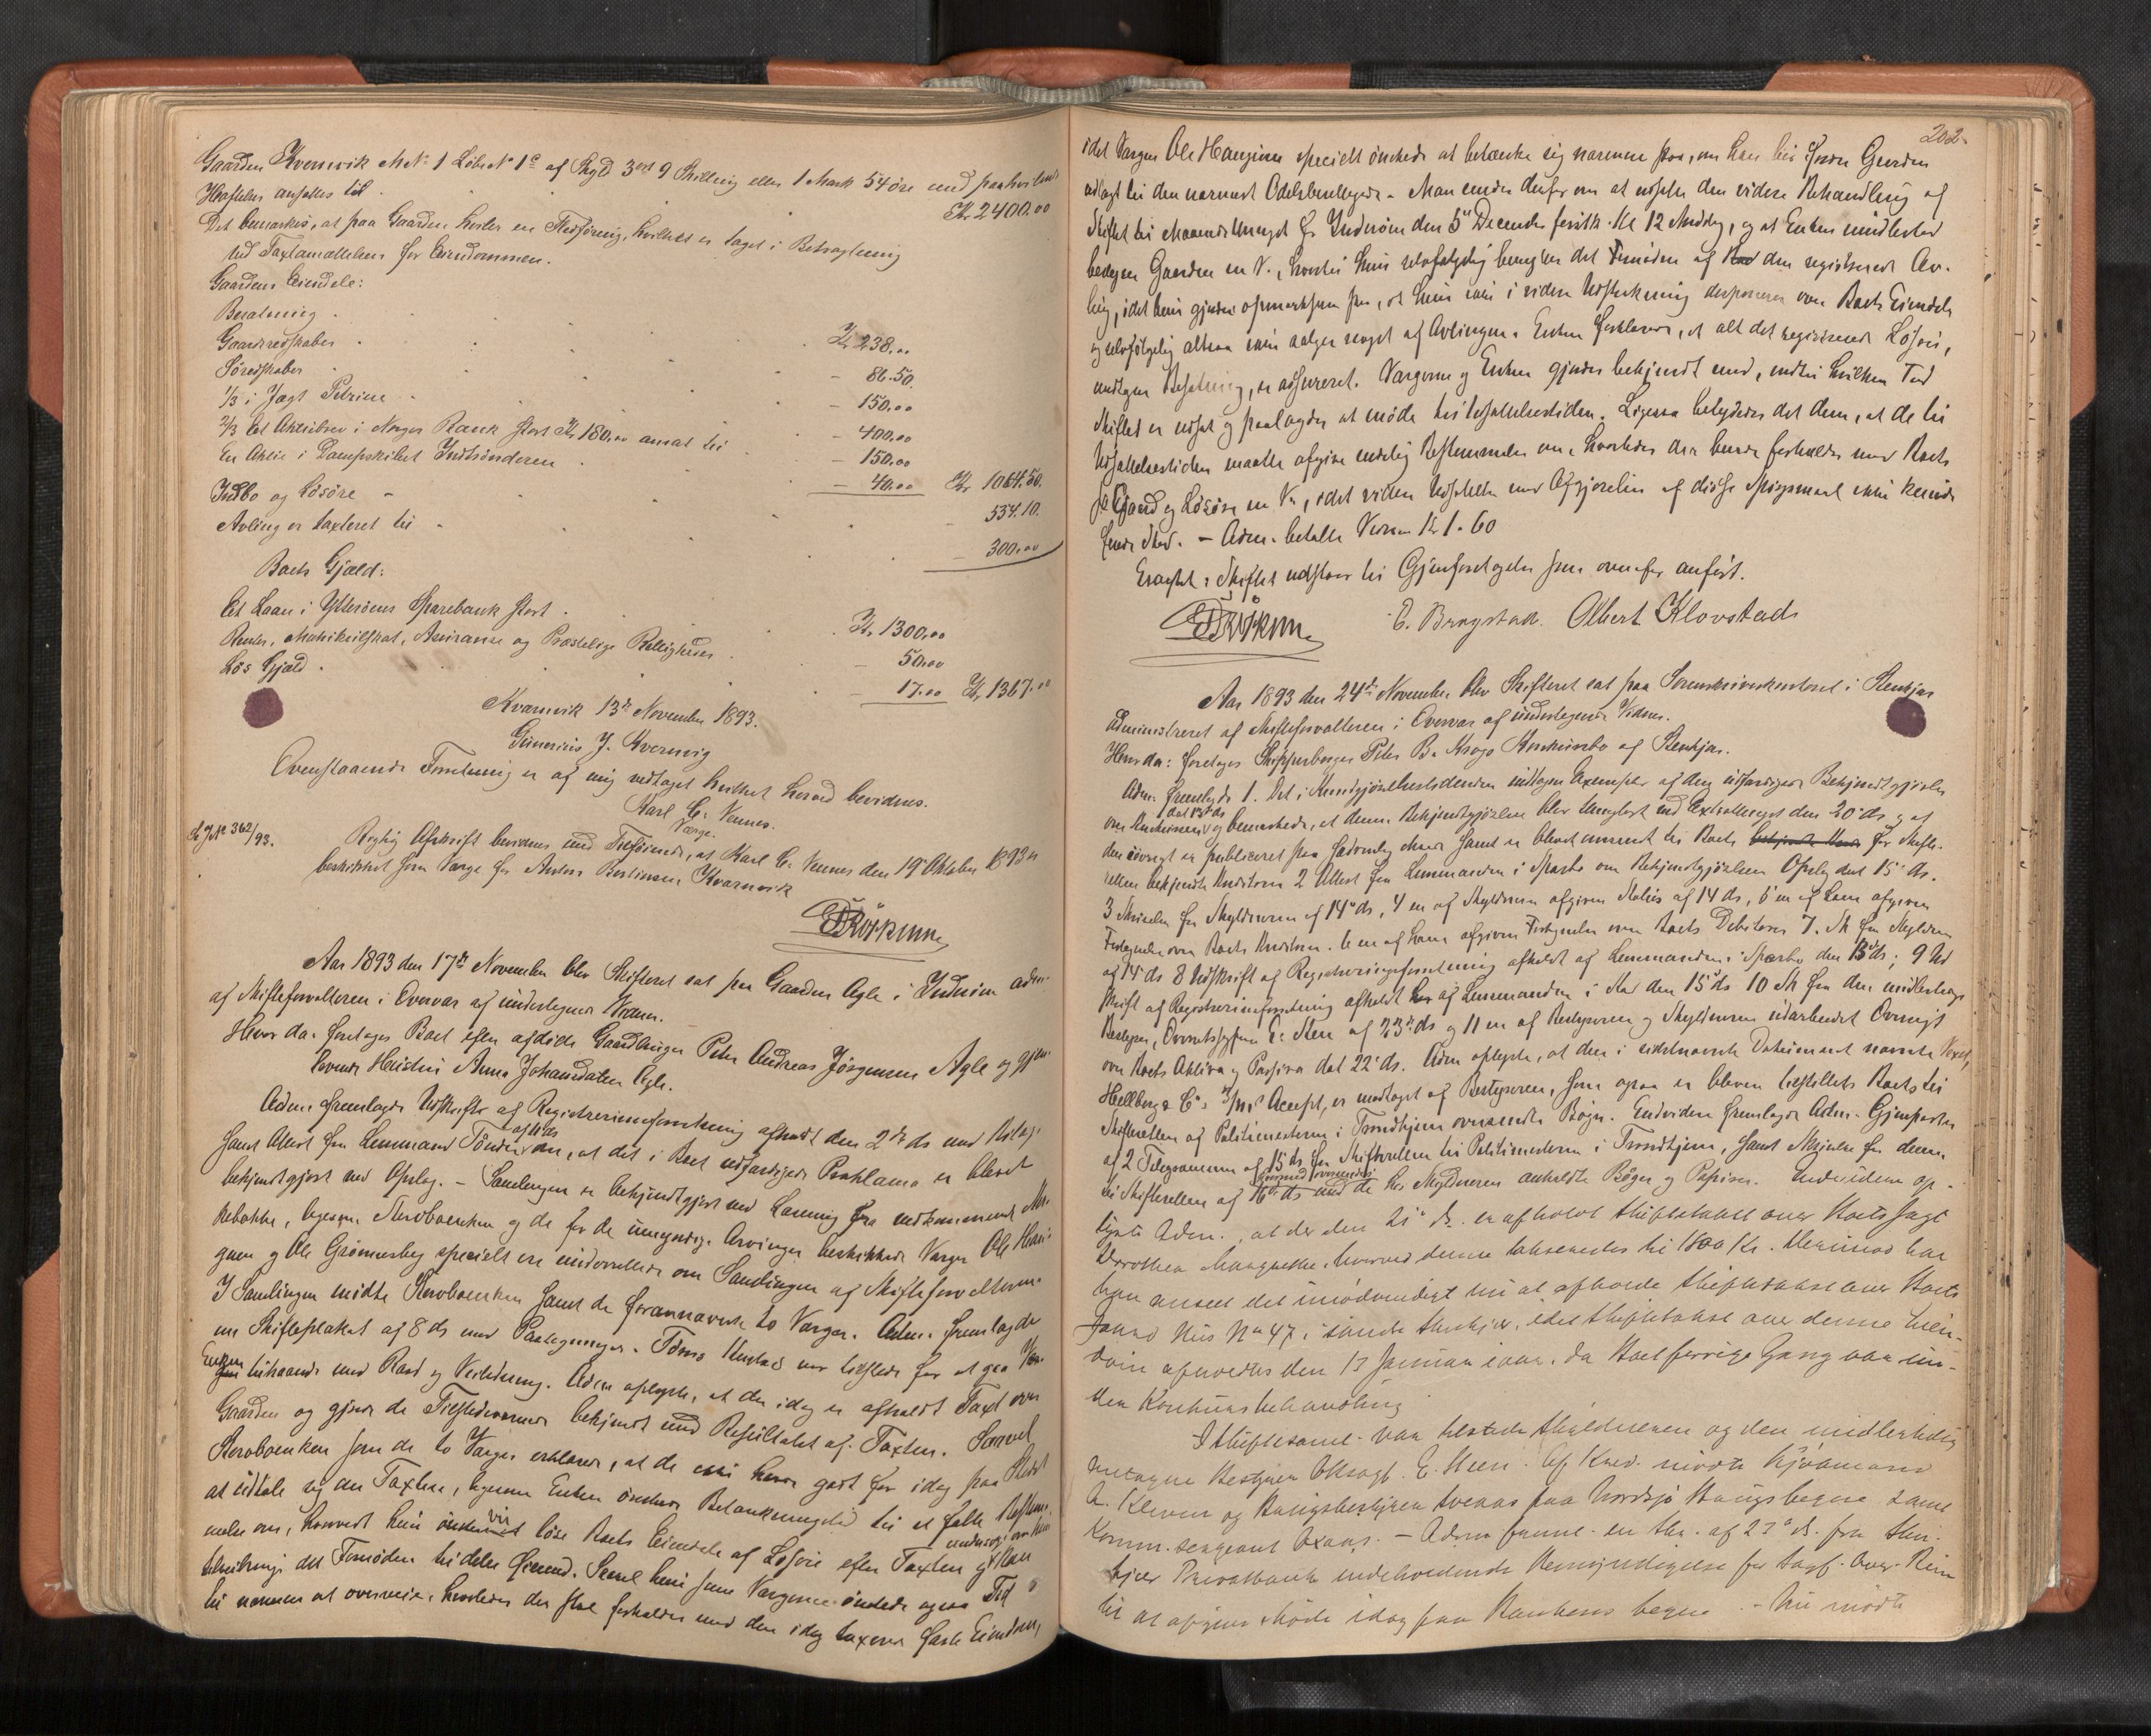 Gaarden Kvernvik M.No 1 Löbe No 1a af Skyld 3 ort 9 Skilling eller 1 Mark 54 öre med paahvilende
Hæftelser ansattes til Kr 2400.00
Det bemærkes, at paa Gaarden hviler en Fledföring, hvilket er taget i Betragtning
ved Taxtansættelsen for Eiendommen.
Gaardens Eiendele:
Besætning Kr 238.00
Gaardsredskaber - 86.50
Söredskaber - 150.00
1/3 i Jagt Petrine - 400.00
2/3 Et Aktiebrev i Norges Bank stort Kr 180.00 ansat til - 150.00
En Aktie i Dampskibet Indherönderen - 40.00 Kr 1064.50
Indbo og Lösöre - 554.10
Avling er taxteret til - 300.00
Boets Gjæld:
Et Laan i Ytteröens Sparebank stort Kr 1300.00
Renter, Matrikulskat, Assurance og Præstelige Rettigheder - 50.00
Lös Gjæld - 17.00 Kr 1367.00
Kvarnvik 13de November 1893.
Gunerius J. Kvernvig
Ovenstaaende Forretning er af mig vedtaget hvilket herved bevidnes.
Karl E. Vennes.
Værge.
No 362/93.
Rigtig Afskrift bevidnes med Tilföiende, at Karl E. Vennes den 19 Oktober 1893 er
beskikket som Værge for Anton Berntinsen Kvarnvik
Aar 1893 den 17de November blev Skifteret sat paa Gaarden Agle i Inderöen adm.
af Skifteforvalteren i Overvær af undertegnede Vidner.
Hvor da: foretages Boet efter afdöde Gaardbruger Peter Andreas Jörgensen Agle og gjen-
levende Hustru Anna Johansdatter Agle.
Adm. fremlagde Udskrift af Registreringsforretning afholdt den 2de ds med Bilag
samt Attest fra Lensmand Tönder af 11 ds om, at det i Boet udfærdigede Proklama er blevet
bekjendtgjort ved Opslag. - Samlingen er bekjendtgjort ved Læsning fra vedkommende
Kirkebakke, ligesom Stervboenken og de for de umyndige Arvinger beskikkede Værger Ole Hau-
gum og Ole Grönnesby specielt ere underrettede om Samlingen af Skifteforvalteren.
I Samlingen mödte Stervboenken samt de forannævnte to Værger. Adm. fremlagde
en Skifteplakat af 8 ds med Paategninger.
Enken tilhaande med Raad og Veiledning. Adm. oplyste, at der idag er afholdt Taxt over
Gaarden og gjorde de Tilstedeværende bekjendt med Resultatet af Taxten. Saavel
Stervboenken som de to Værger erklærede, at de ikke havde godt for idag paa Stedet
at udtale sig om Taxten, ligesom Enken önskede Betænkningstid til at fatte Bestem-
melse om, hvorvidt hun vil löse Boets Eiendele af Lösöre efter Taxten
Saavel hun som Værgerne önskede ogsaa Tid
til nærmere at overveie, hvorledes der skal forholdes med den idag taxerede faste Eiendom,
202.
idet Værgen Ole Haugum specielt önskede at betænke sig nærmere paa, om han vil fordre Gaarden
udlagt til den nærmest Odelsberettigede. - Man enedes derfor om at udsætte den videre Behandling af
Skiftet til Maanedsthinget for Inderöen den 5te December förstk. Kl 12 Middag, og at Enken imidlertid
bestyrer Gaarden m. V., hvortil hun selvfölgelig benytter det Fornödne af den registrerede Av-
ling, idet hun gjöres opmærksom paa, at hun ikke i videre Udstrækning disponerer over Boets Eiendele
og selvfölgelig altsaa ikke sælger noget af Avlingen. Enken forklarede, at alt det registrerede Lösöre,
undtagen Besætning, er assureret. Værgerne og Enken gjordes bekjendt med, indtil hvilken Tid
Skiftet er udsat og paalagdes at möde til Udsættelsestiden. Ligesaa betydedes det dem, at de til
Udsættelsestiden maatte afgive endelig Bestemmelse om, hvorledes der burde forholdes med Boets
Gaard og Lösöre m. V., idet videre Udsættelse med Afgjörelsen af disse Spörgsmaal ikke kunde
finde Sted. - Adm. betalte Vidnerne Kr 1.60
Eragtet: Skiftet udstaar til Gjenforetagelse som ovenfor anfört.
E. Bragstad. Albert Klovstad
Aar 1893 den 24de November blev Skifteret sat paa Sorenskriverkontoret i Stenkjær
administreret af Skifteforvalteren i Overvær af undertegnede Vidner.
Hvor da: foretages Skipperborger Peter B. Krogs Konkursbo af Stenkjær.
Adm. fremlagde 1. Det i Kundgjörelsestidenden indtagne Exemplar af den udfærdigede Bekjendtgjörelse
om Konkursen dat 13 ds og bemærkede, at denne Bekjendtgjörelse blev thinglæst ved Extrathinget den 20de ds og at
den iövrigt er publiceret paa sædvanlig Maade samt er blevet meddelt til Boets for Skifte-
retten bekjendte Kreditorer 2 Attest fra Lensmanden i Sparbu om Bekjendtgjörelsens Opslag dat 15 ds.
3 Skrivelse fra Skyldneren af 14de ds, 4 en af Skyldneren afgiven Status af 14 ds, 5 en af ham afgiven
Fortegnelse over Boets Kreditorer. 6 en af ham afgiven Fortegnelse over Boets Debitorer 7. Sk fra Skyldneren
af 14 ds 8 Udskrift af Registreringsforretning afholdt af Lensmanden i Sparbu den 15 ds; 9 Ud
skrift af Registreringsforretning afholdt af Lensmanden i den 15 ds 10 Sk fra den midlertidige
Bestyrer, Overretssagförer E. Steen af 23de ds og 11 en af Bestyreren og Skyldneren udarbeidet Oversigt
over Boets Aktiva og Passiva dat 22 ds. Adm. oplyste, at den i sidstnævnte Dokument nævnte Vexel,
Accept, er modtaget af Bestyreren, som ogsaa er bleven tilstillet Boets til
Skifteretten af Politimesteren i Trondhjem oversendte Böger. Endvidere fremlagde Adm. Gjenparter
af 2 Telegrammer af 15 ds fra Skifteretten til Politimesteren i Trondhjem, samt Skrivelse fra denne
til Skifteretten af 16de ds hos Skyldneren anholdte Böger og Papirer. Endvidere op-
lyste Adm., at der den 21de ds. er afholdt Skiftetaxt over Boets Jagt
Dorothea Margrethe, hvorved denne taxeredes til 1800 Kr. Derimod har
han anseet det unödvendigt nu at afholde Skiftetaxt over Boets
Gaard Hus No 47 i Stenkjær, idet Skiftetaxt over denne Eien-
dom afholdtes den 13 Januar iaar, da Boet forrige Gang var un-
der Konkursbehandling
I Skiftesaml. var tilstede Skyldneren og den midlertidig
antagne Bestyrer Oksagf. E. Steen. Af Kred. mödte Kjöbmand
A. Kleven og paa Nordsjö Brugs vegne samt
Komm. sergeant Oxaas. - Adm. freml. en Skr. af 23de ds. fra Sten-
kjær Privatbank indeholdende Bemyndigelse for Sagf. Aug. Rein
til at afgive Möde idag paa Bankens vegne. - Nu mödte